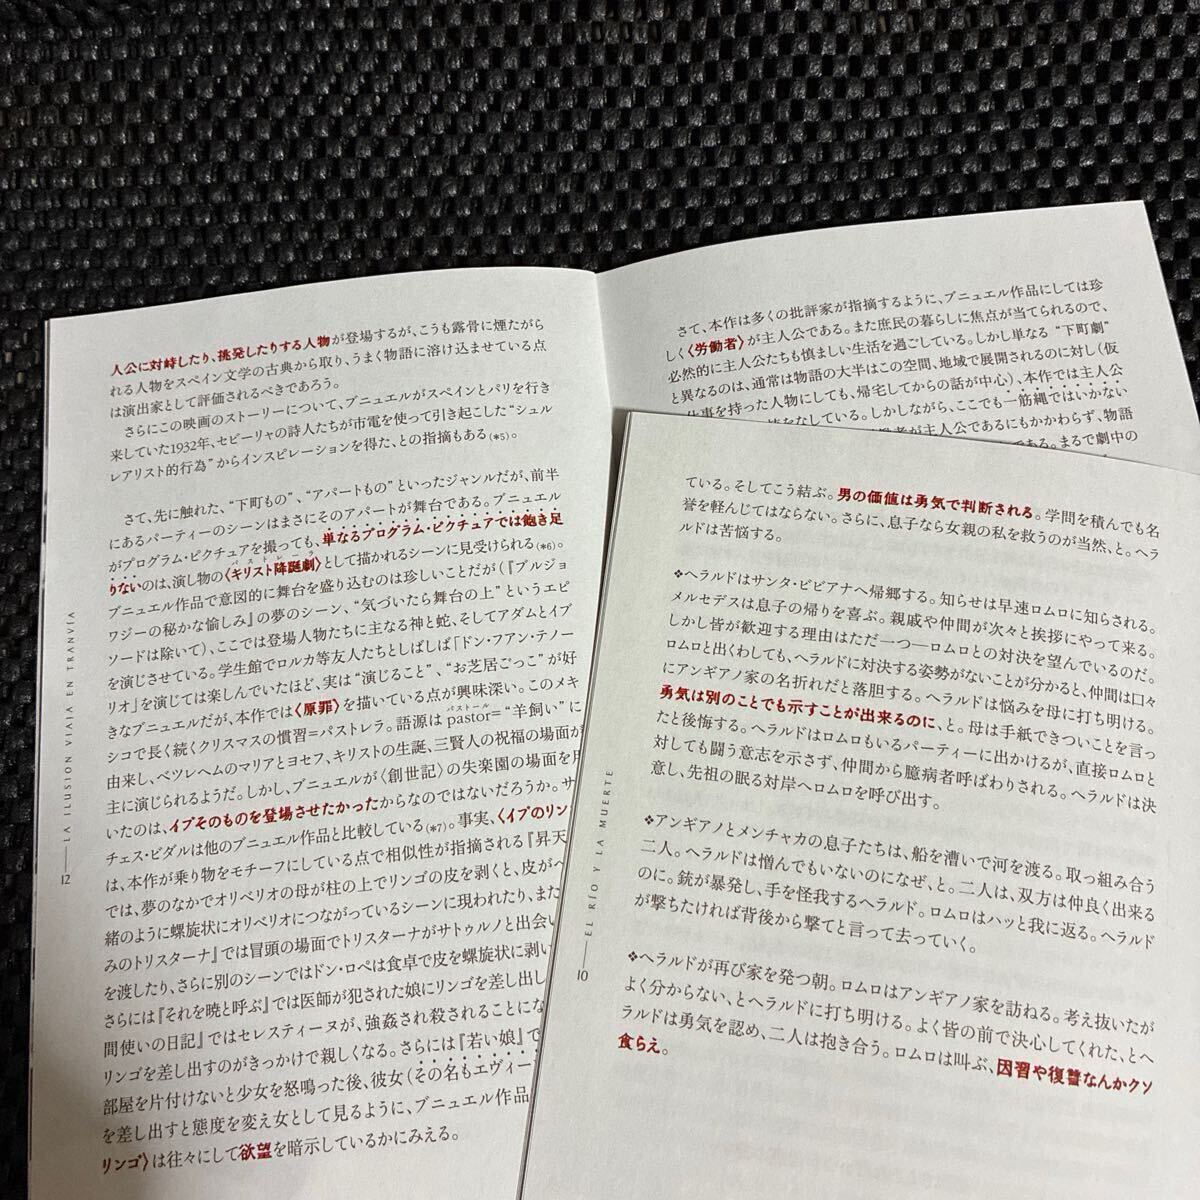 人公に対峙したり、挑発したりする人物が登場するが、こうも露骨に煙たがら
れる人物をスペイン文学の古典から取り、うまく物語に溶け込ませている点
は演出家として評価されるべきであろう。
さらにこの映画のストーリーについて、ブニュエルがスペインとパリを行き
来していた1932年、セビーリャの詩人たちが市電を使って引き起こした“シュル
レアリスト的行為”からインスピレーションを得た、との指摘もある(*5)。
さて、先に触れた、“下町もの”、“アパートもの”といったジャンルだが、前半
にあるパーティーのシーンはまさにそのアパートが舞台である。ブニュエル
がプログラム・ピクチュアを撮っても、単なるプログラム・ピクチュアでは飽き足
りないのは、演し物の〈キリスト降誕劇〉として描かれるシーンに見受けられる(*6)。
パストレーラ
ブニュエル作品で意図的に舞台を盛り込むのは珍しいことだが(『ブルジョ
ワジーの秘かな愉しみ』の夢のシーン、“気づいたら舞台の上”というエピ
ソードは除いて)、ここでは登場人物たちに主なる神と蛇、そしてアダムとイブ
を演じさせている。学生館でロルカ等友人たちとしばしば「ドン・フアン・テノー
リオ」を演じては楽しんでいたほど、実は“演じること”、“お芝居ごっこ”が好
きなブニュエルだが、本作では〈原罪〉を描いている点が興味深い。このメキ
シコで長く続くクリスマスの慣習=パストレラ。語源はpastor=“羊飼い”に
パストール
由来し、ベツレヘムのマリアとヨセフ、キリストの生誕、三賢人の祝福の場面が
主に演じられるようだ。しかし、ブニュエルが〈創世記〉の失楽園の場面を用
いたのは、イブそのものを登場させたかったからなのではないだろうか。サ
チェス・ビダルは他のブニュエル作品と比較している(*7)。事実、〈イブのリン
は、本作が乗り物をモチーフにしている点で相似性が指摘される『昇天
では、夢のなかでオリベリオの母が柱の上でリンゴの皮を剥くと、皮がへ
緒のように螺旋状にオリベリオにつながっているシーンに現われたり、また
みのトリスターナ』では冒頭の場面でトリスターナがサトゥルノと出会い
を渡したり、さらに別のシーンではドン・ロペは食卓で皮を螺旋状に剥い
さらには『それを暁と呼ぶ』では医師が犯された娘にリンゴを差し出し
間使いの日記』ではセレスティーヌが、強姦され殺されることにな
リンゴを差し出すのがきっかけで親しくなる。さらには『若い娘』で
部屋を片付けないと少女を怒鳴った後、彼女(その名もエヴィー
を差し出すと態度を変え女として見るように、ブニュエル作品
リンゴ〉は往々にして欲望を暗示しているかにみえる。
12
LA ILUSION VIAJA EN TRANVIA
さて、本作は多くの批評家が指摘するように、ブニュエル作品にしては珍
しく〈労働者〉が主人公である。また庶民の暮らしに焦点が当てられるので、
必然的に主人公たちも慎ましい生活を過ごしている。しかし単なる“下町劇”
と異なるのは、通常は物語の大半はこの空間、地域で展開されるのに対し(仮
仕事を持った人物にしても、帰宅してからの話が中心)、本作では主人公
をなしている。しかしながら、ここでも一筋縄ではいかない
者が主人公であるにもかかわらず、物語
である。まるで劇中の
ている。そしてこう結ぶ。男の価値は勇気で判断される。学問を積んでも名
誉を軽んじてはならない。さらに、息子なら女親の私を救うのが当然、と。ヘラ
ルドは苦悩する。
❖ヘラルドはサンタ・ビビアナへ帰郷する。知らせは早速ロムロに知らされる。
メルセデスは息子の帰りを喜ぶ。親戚や仲間が次々と挨拶にやって来る。
しかし皆が歓迎する理由はただ一つ―ロムロとの対決を望んでいるのだ。
ロムロと出くわしても、ヘラルドに対決する姿勢がないことが分かると、仲間は口々
にアンギアノ家の名折れだと落胆する。ヘラルドは悩みを母に打ち明ける。
勇気は別のことでも示すことが出来るのに、と。母は手紙できついことを言っ
たと後悔する。ヘラルドはロムロもいるパーティーに出かけるが、直接ロムロと
対しても闘う意志を示さず、仲間から臆病者呼ばわりされる。ヘラルドは決
意し、先祖の眠る対岸へロムロを呼び出す。
❖アンギアノとメンチャカの息子たちは、船を漕いで河を渡る。取っ組み合う
二人。ヘラルドは憎んでもいないのになぜ、と。二人は、双方は仲良く出来る
のに。銃が暴発し、手を怪我するヘラルド。ロムロはハッと我に返る。ヘラルド
が撃ちたければ背後から撃てと言って去っていく。
❖ヘラルドが再び家を発つ朝。ロムロはアンギアノ家を訪ねる。考え抜いたが
よく分からない、とヘラルドに打ち明ける。よく皆の前で決心してくれた、とヘ
ラルドは勇気を認め、二人は抱き合う。ロムロは叫ぶ、因習や復讐なんかクソ
食らえ。
10
EL RÍO Y LA MUERTE